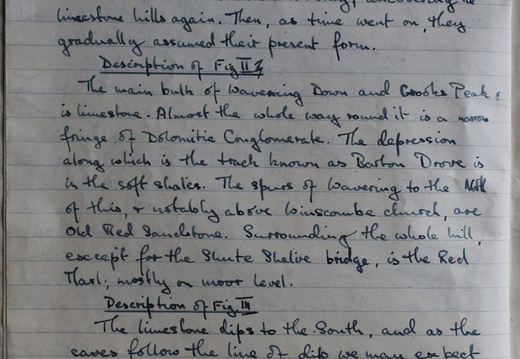 limestone hills again. Then, as time went on, they
gradually assumed their present form.
Description of Fig II
The main bulk of Wavering Down and Crooks Peak
is limestone. Almost the whole way round it is a narrow
fringe of Dolomitic Conglomerate. The depression
along which is the track known as Barton Drove is
in the soft shales. The spurs of Wavering to the North
of this, & notably above Winscombe church, are
Old Red Sandstone. Surrounding the whole hill,
except for the Shute Shelve bridge, is the Red
Marl, mostly on moor level.
Description of Fig III
The limestone dips to the South, and as the
caves follow the line of dip we may expect